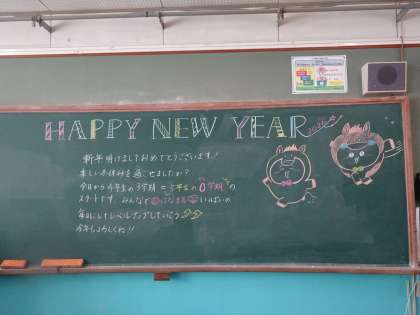 HAPPY NEW YEAR
2026
新年明けましておめでとうございます!
楽しい冬休みを過ごせましたか?
今日から4年生の3学期=5年生の0学期の
スタートです。みんなではなまるいっぱいの
毎日にしてレベルアップしていこう
今年もよろしくね!!